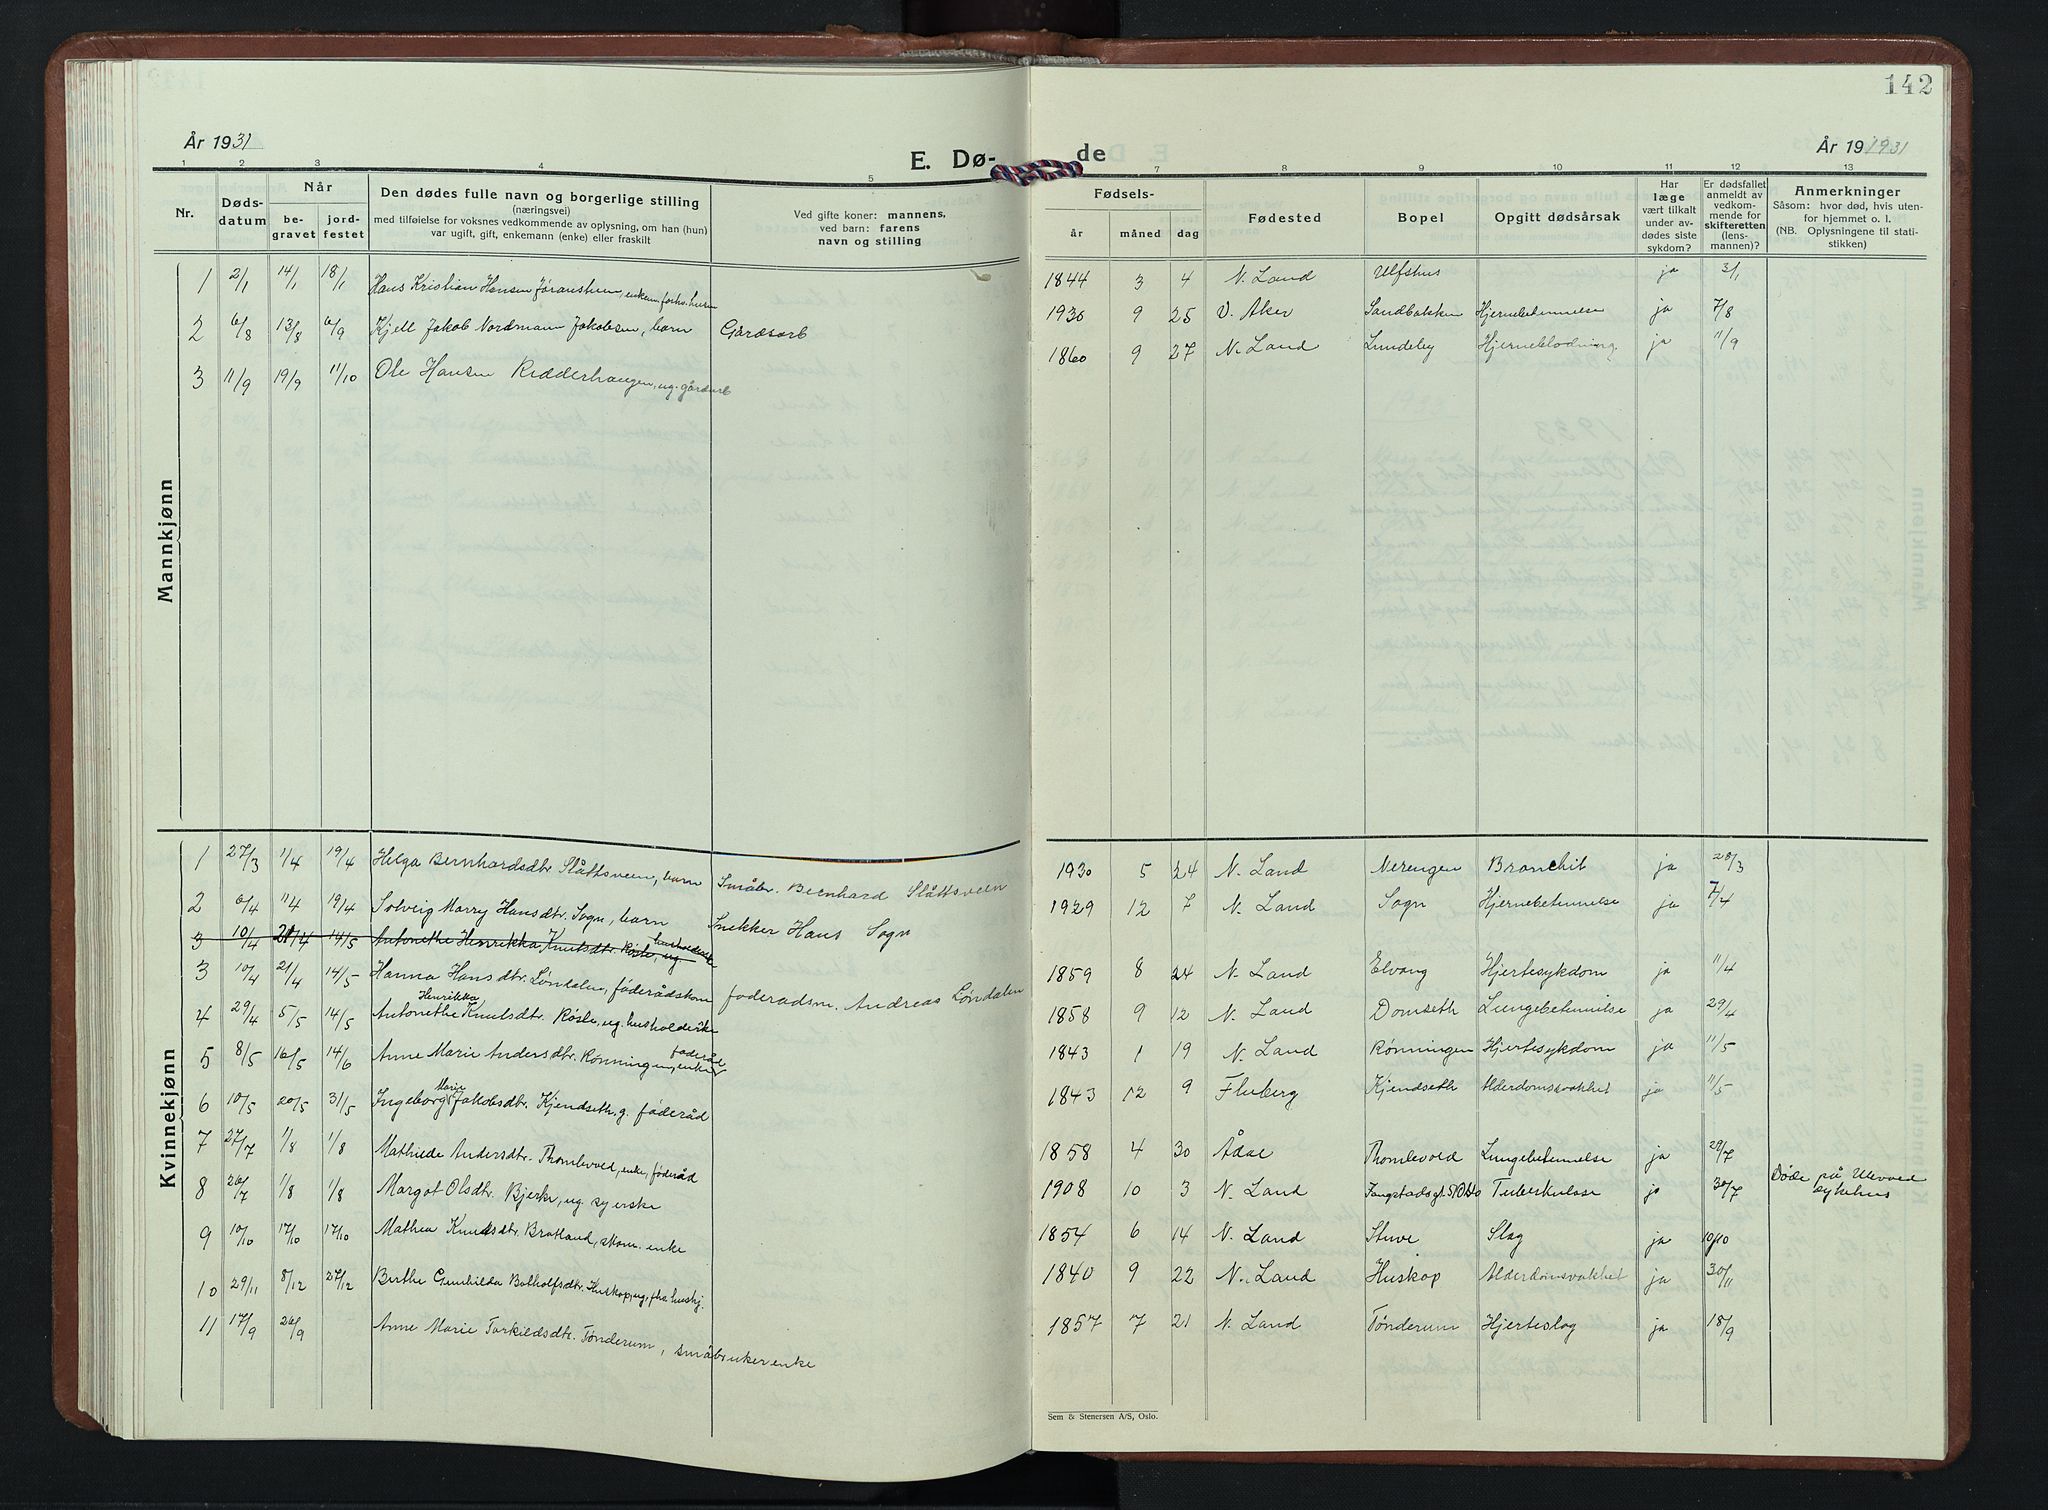 142
År 1931
E. Dø-
de
År 19 1931
1 2 3 4 5 7 8 9 10 11 12 13
Nr.
Døds-
datum
Når
be-
gravet
jord-
festet
Den dødes fulle navn og borgerlige stilling
(næringsvei)
med tilføielse for voksnes vedkommende av oplysning, om han (hun)
var ugift, gift, enkemann (enke) eller fraskilt
Ved gifte koner: mannens,
ved barn: farens
navn og stilling
Fødsels-
år
måned
dag
Fødested
Bopel
Opgitt dødsårsak
Har
læge
vært tilkalt
under av-
dødes siste
sykdom?
Er dødsfallet
anmeldt av
vedkom-
mende for
skifteretten
(lens-
mannen)?
Anmerkninger
Såsom: hvor død, hvis uten-
for hjemmet o. l.
(NB. Oplysningene til stati-
stikken)
Mannkjønn
1 2/1 14/1 18/1 Hans Kristian Hansen enkem. 1844 3 4 N. Land Ulfshus ja 3/1
2 6/8 13/8 6/9 Kjell Jakob Nordmann Jakobsen, barn Gårdsarb 1930 9 25 V. Aker Sandbakken Hjernebetennelse ja 7/8
3 11/9 19/9 11/10 Ole Hansen Ridderhaugen, ug. gårdarb 1860 9 27 N. Land Lundeby Hjerneblødning ja 11/9
Kvinnekjønn
1 27/3 1/4 19/4 Helga Bernhardsdtr. Slåttsveen, barn Småbr. Bernhard Slåttsveen 1930 5 24 N. Land Nerengen Bronchit ja 28/3
2 6/4 11/4 19/4 Solveig Marry Hansdtr. Sogn, barn Snekker Hans Sogn 1929 12 7 N. Land Sogn Hjernebetennelse ja 7/4
3 10/4 21/4 14/5 Antonethe Henrikka Knutsdtr. Røsle, ug husholderske
3 10/4 21/4 14/5 Hanna Hansdtr. Løndalen, føderådskone føderådsm. Andreas Løndalen 1859 8 24 N. Land Elvang Hjertesykdom ja 11/4
4 29/4 5/5 14/5 Antonethe Henrikka Knutsdtr. Røsle, ug. husholderske 1858 9 12 N. Land Domseth Lungebetennelse ja 29/4
5 8/5 16/5 14/6 Anne Marie Andersdtr. Rønningen, enke føderåd 1843 1 19 N. Land Rønningen Hjertesykdom ja 11/5
6 10/5 20/5 31/5 Ingeborg Marie Jakobsdtr. Kjendseth, g. føderåd 1843 12 9 Fluberg Kjendseth Alderdomssvakhet ja 11/5
7 27/7 1/8 1/8 Mathilde Andersdtr. Thomlevold, enke, føderåd 1858 4 30 Ådal Thomlevold Lungebetennelse ja 29/7
8 26/7 1/8 1/8 Margot Olsdtr. Bjerke, ug. syerske 1908 10 3 N. Land Oslo Tuberkulose ja 30/7 Døde på Ulevold sykehus
9 10/10 17/10 17/10 Mathea Knutsdtr. Bratland, skom. enke 1854 6 14 N. Land Stuve Slag ja 10/10
10 29/11 8/12 27/12 Berthe Gunhilda Botholfsdtr. Huskop, ug, fhv. hushj. 1840 9 22 N. Land Huskop Alderdomsvakhet ja 30/11
11 17/9 26/9 Anne Marie Torkildsdtr. Tønderum, småbrukerenke 1857 7 21 N. Land Tønderum Hjerteslag ja 18/9
Sem & Stenersen A/S, Oslo.